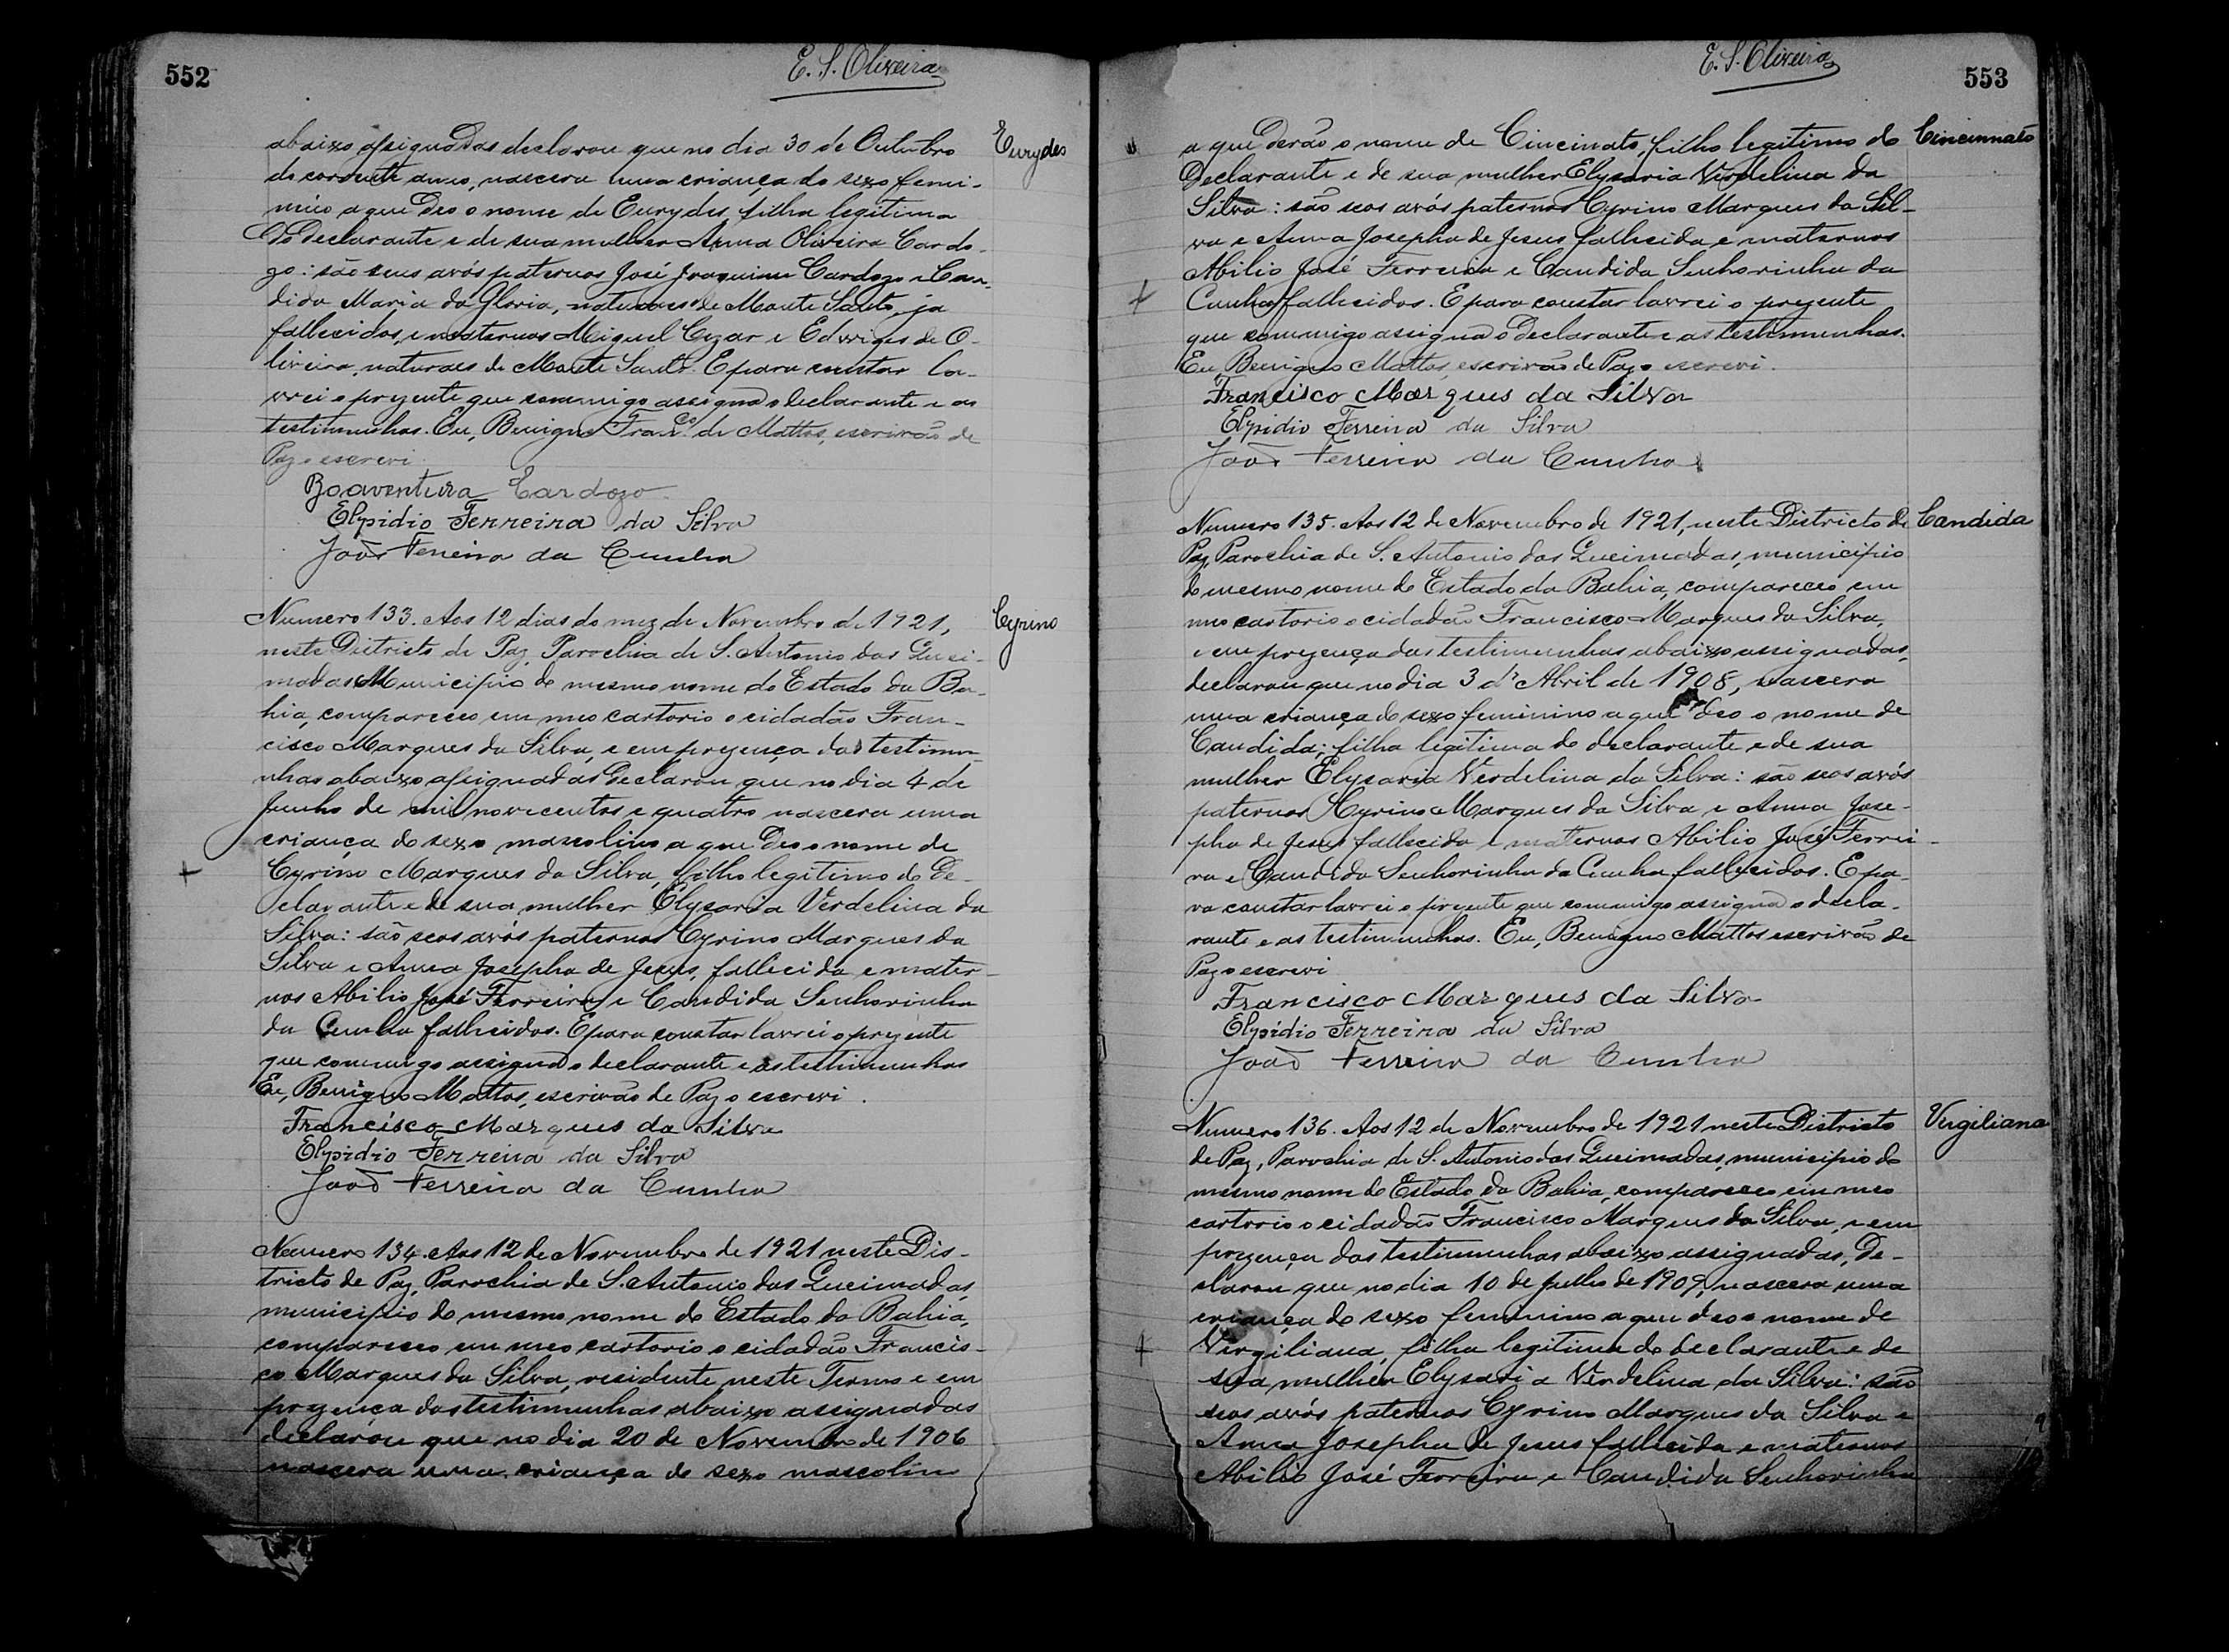 552
E. S. Oliveira
Eurydes
abaixo assignadas declarou que no dia 30 de Outubro
do corrente anno, nascera uma criança do sexo femi-
nino a que deo o nome de Eurydes, filha legitima
do declarante e de sua mulher Anna Oliveira Cardo-
zo: são seus avós paternos José Joaquim Cardozo e Can-
dida Maria da Gloria, naturaes de Monte Santo, ja
fallecidos, e maternos Miguel Cezar e Edwiges de O-
liveira, naturaes de Monte Santo. E para constar la-
vrei o prezente que commigo assigna o declarante e as
testimunhas. Eu, Benigno Franco. de Mattos, escrivão de
Paz o escrevi.
Boaventura Cardozo
Elpidio Ferreira da Silva
João Ferreira da Cunha
Cyrino
Numero 133. Aos 12 dias do mez de Novembro de 1921,
neste Districto de Paz, Parochia de S. Antonio das Quei-
madas Municipio do mesmo nome do Estado da Ba-
hia, compareceo em meo cartorio o cidadão Fran-
cisco Marques da Silva, e em prezença das testimu-
nhas abaixo assignadas declarou que no dia 4 de
Junho de mil novecentos e quatro nascera uma
criança do sexo mascolino a que deo o nome de
Cyrino Marques da Silva, filho legitimo do De-
clarante e de sua mulher Elysaria Verdelina da
Silva: são seos avós paternos Cyrino Marques da
Silva e Anna Josepha de Jesus, fallecida e mater-
nos Abilio José Ferreira e Candida Senhorinha
da Cunha fallecidos. E para constar lavrei o prezente
que commigo assigna o declarante e as testimunhas
Eu, Benigno Mattos, escrivão de Paz o escrevi.
Francisco Marques da Silva
Elpidio Ferreira da Silva
João Ferreira da Cunha
Numero 134. Aos 12 de Novembro de 1921 neste Dis-
tricto de Paz, Parochia de S. Antonio das Queimadas,
municipio do mesmo nome do Estado da Bahia,
compareceo em meo cartorio o cidadão Francis-
co Marques da Silva, residente neste Termo e em
prezença das testimunhas abaixo assignadas
declarou que no dia 20 de Novembro de 1906
nascera uma criança do sexo mascolino
E. S. Oliveira
553
Cincinnato
a que derão o nome de Cincinato, filho legitimo do
Declarante e de sua mulher Elysaria Verdelina da
Silva: são seos avós paternos Cyrino Marques da Sil-
va e Anna Josepha de Jesus fallecida e maternos
Abilio José Ferreira e Candida Senhorinha da
Cunha fallecidos. E para constar lavrei o prezente
que commigo assigna o Declarante e as testimunhas.
Eu, Benigno Mattos, escrivão de Paz o escrevi.
Francisco Marques da Silva
Elpidio Ferreira da Silva
João Ferreira da Cunha
Candida
Numero 135. Aos 12 de Novembro de 1921, neste Districto de
Paz, Parochia de S. Antonio das Queimadas, municipio
do mesmo nome do Estado da Bahia, compareceo em
meo cartorio o cidadão Francisco Marques da Silva,
e em prezença das testimunhas abaixo assignadas,
declarou que no dia 3 de Abril de 1908, nascera
uma criança do sexo feminino a que deo o nome de
Candida; filha legitima do declarante e de sua
mulher Elysaria Verdelina da Silva: são seos avós
paternos Cyrino Marques da Silva e Anna Jose-
pha de Jesus fallecida e maternos Abilio José Ferrei-
ra e Candida Senhorinha da Cunha fallecidos. E pa-
ra constar lavrei o prezente que commigo assigna o decla-
rante e as testimunhas. Eu, Benigno Mattos escrivão de
Paz o escrevi
Francisco Marques da Silva
Elpidio Ferreira da Silva
João Ferreira da Cunha
Virgiliana
Numero 136. Aos 12 de Novembro de 1921 neste Districto
de Paz, Parochia de S. Antonio das Queimadas, municipio do
mesmo nome do Estado da Bahia, compareceo em meo
cartorio o cidadão Francisco Marques da Silva, e em
prezença das testimunhas abaixo assignadas, De-
clarou que no dia 10 de Julho de 1909, nascera uma
criança do sexo feminino a que deo o nome de
Virgiliana, filha legitima do declarante e de
sua mulher Elysaria Verdelina da Silva: são
seos avós paternos Cyrino Marques da Silva e
Anna Josepha de Jesus fallecida e maternos
Abilio José Ferreira e Candida Senhorinha